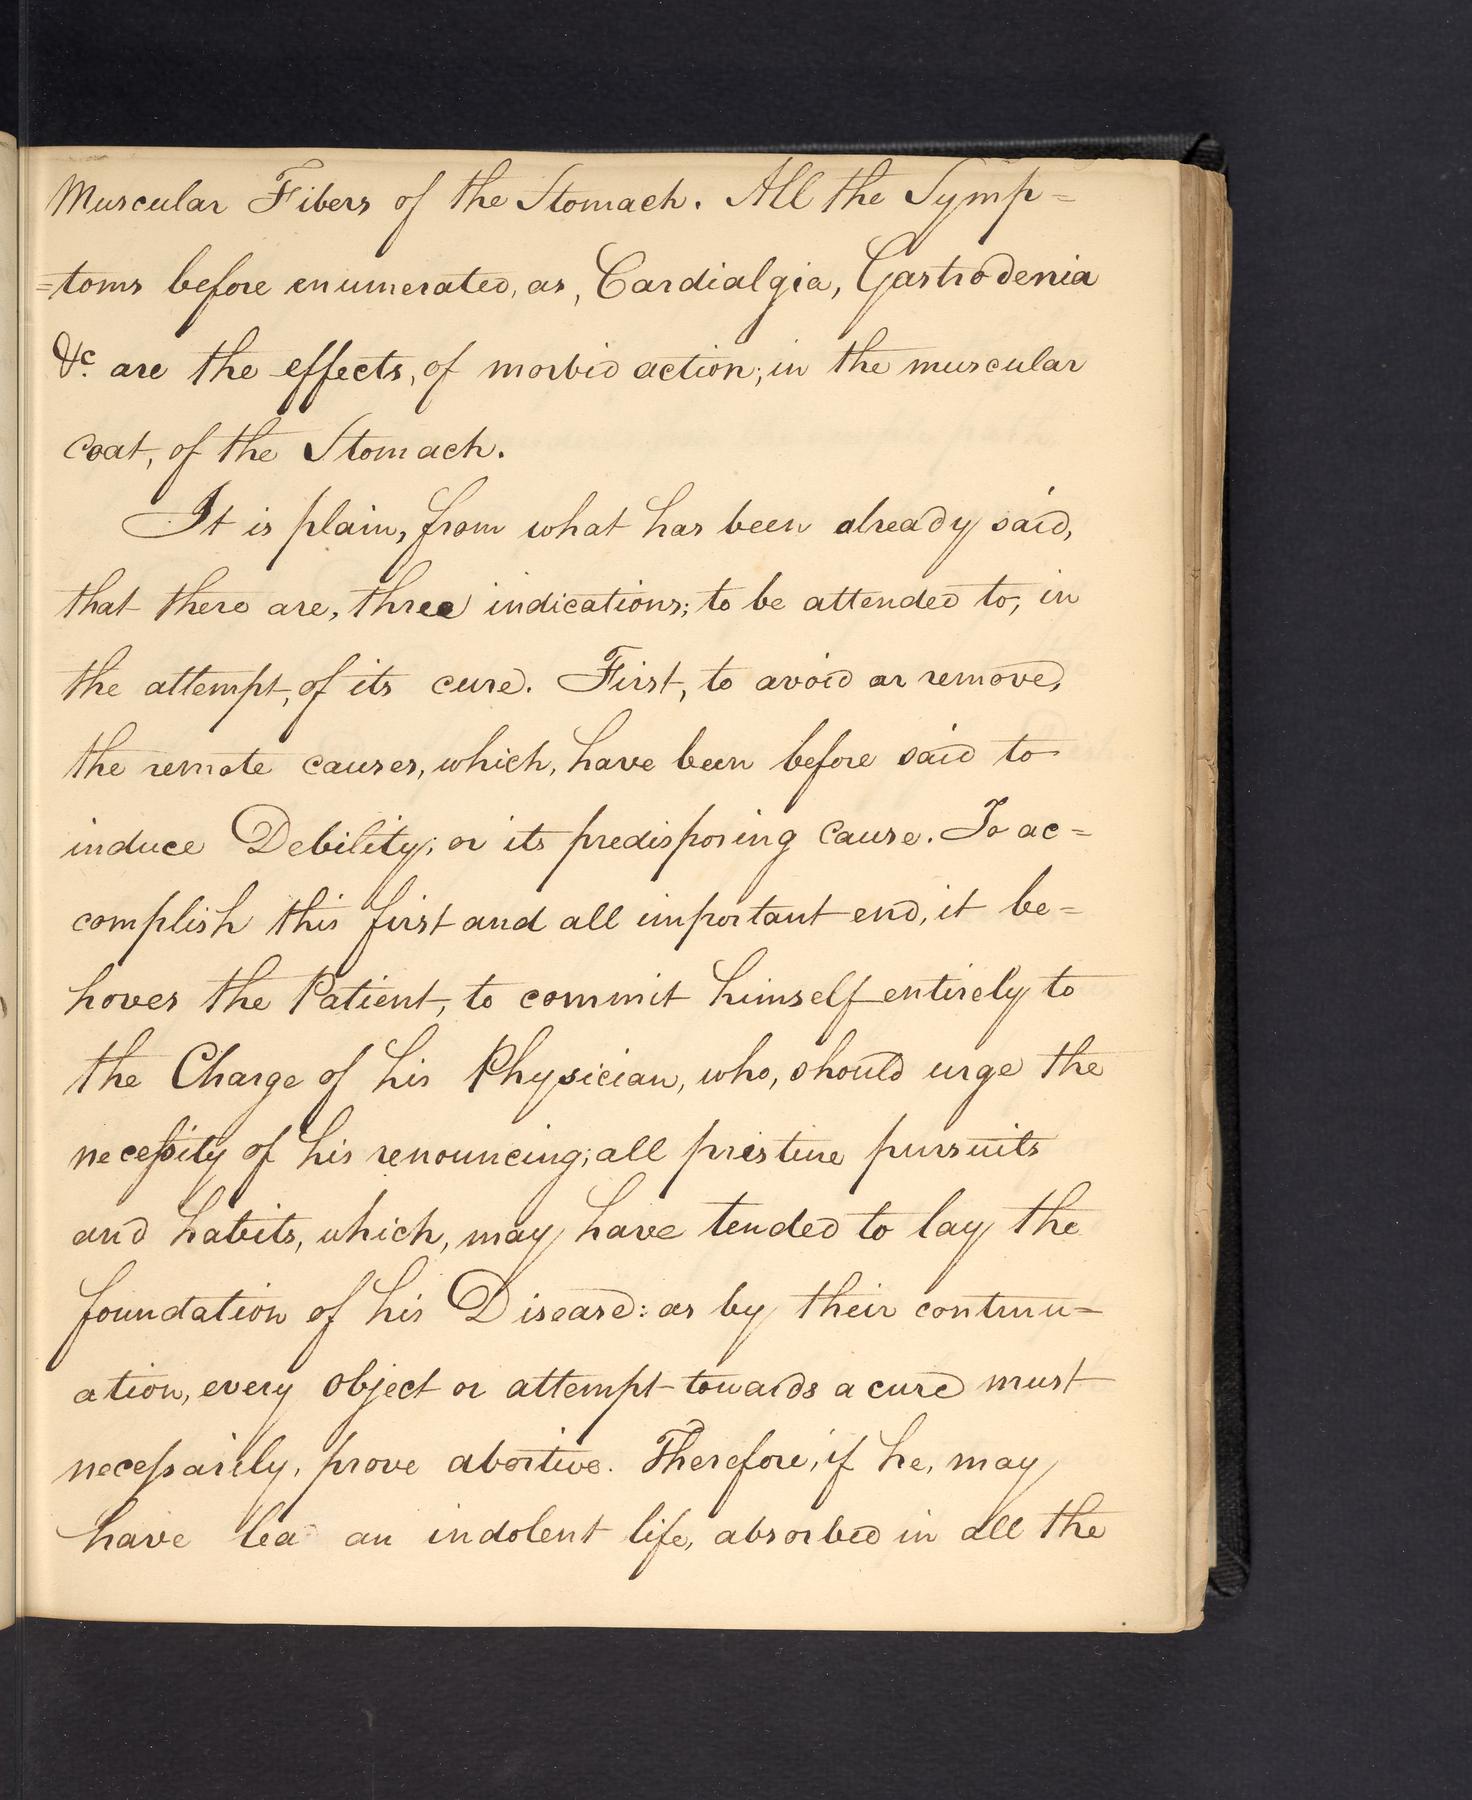 Muscular Fibers of the Stomach. All the Symp=
=toms before enumerated, as, Cardialgia, Gastrodenia
&c. are the effects, of morbid action; in the muscular
coat, of the Stomach.
It is plain, from what has been already said,
that there are, three indications; to be attended to, in
the attempt, of its cure. First, to avoid or remove,
the remote causes, which, have been before said to
induce Debility; or its predisposing cause. To ac=
complish this first and all important end, it be=
hoves the Patient, to commit himself entirely to
the Charge of his Physician, who, should urge the
necessity of his renouncing; all pristine pursuits
and habits, which, may have tended to lay the
foundation of his Disease: as by their continu=
ation, every object or attempt towards a cure must
necessarily, prove abortive. Therefore, if he, may
have lea an indolent life, absorbed in all the